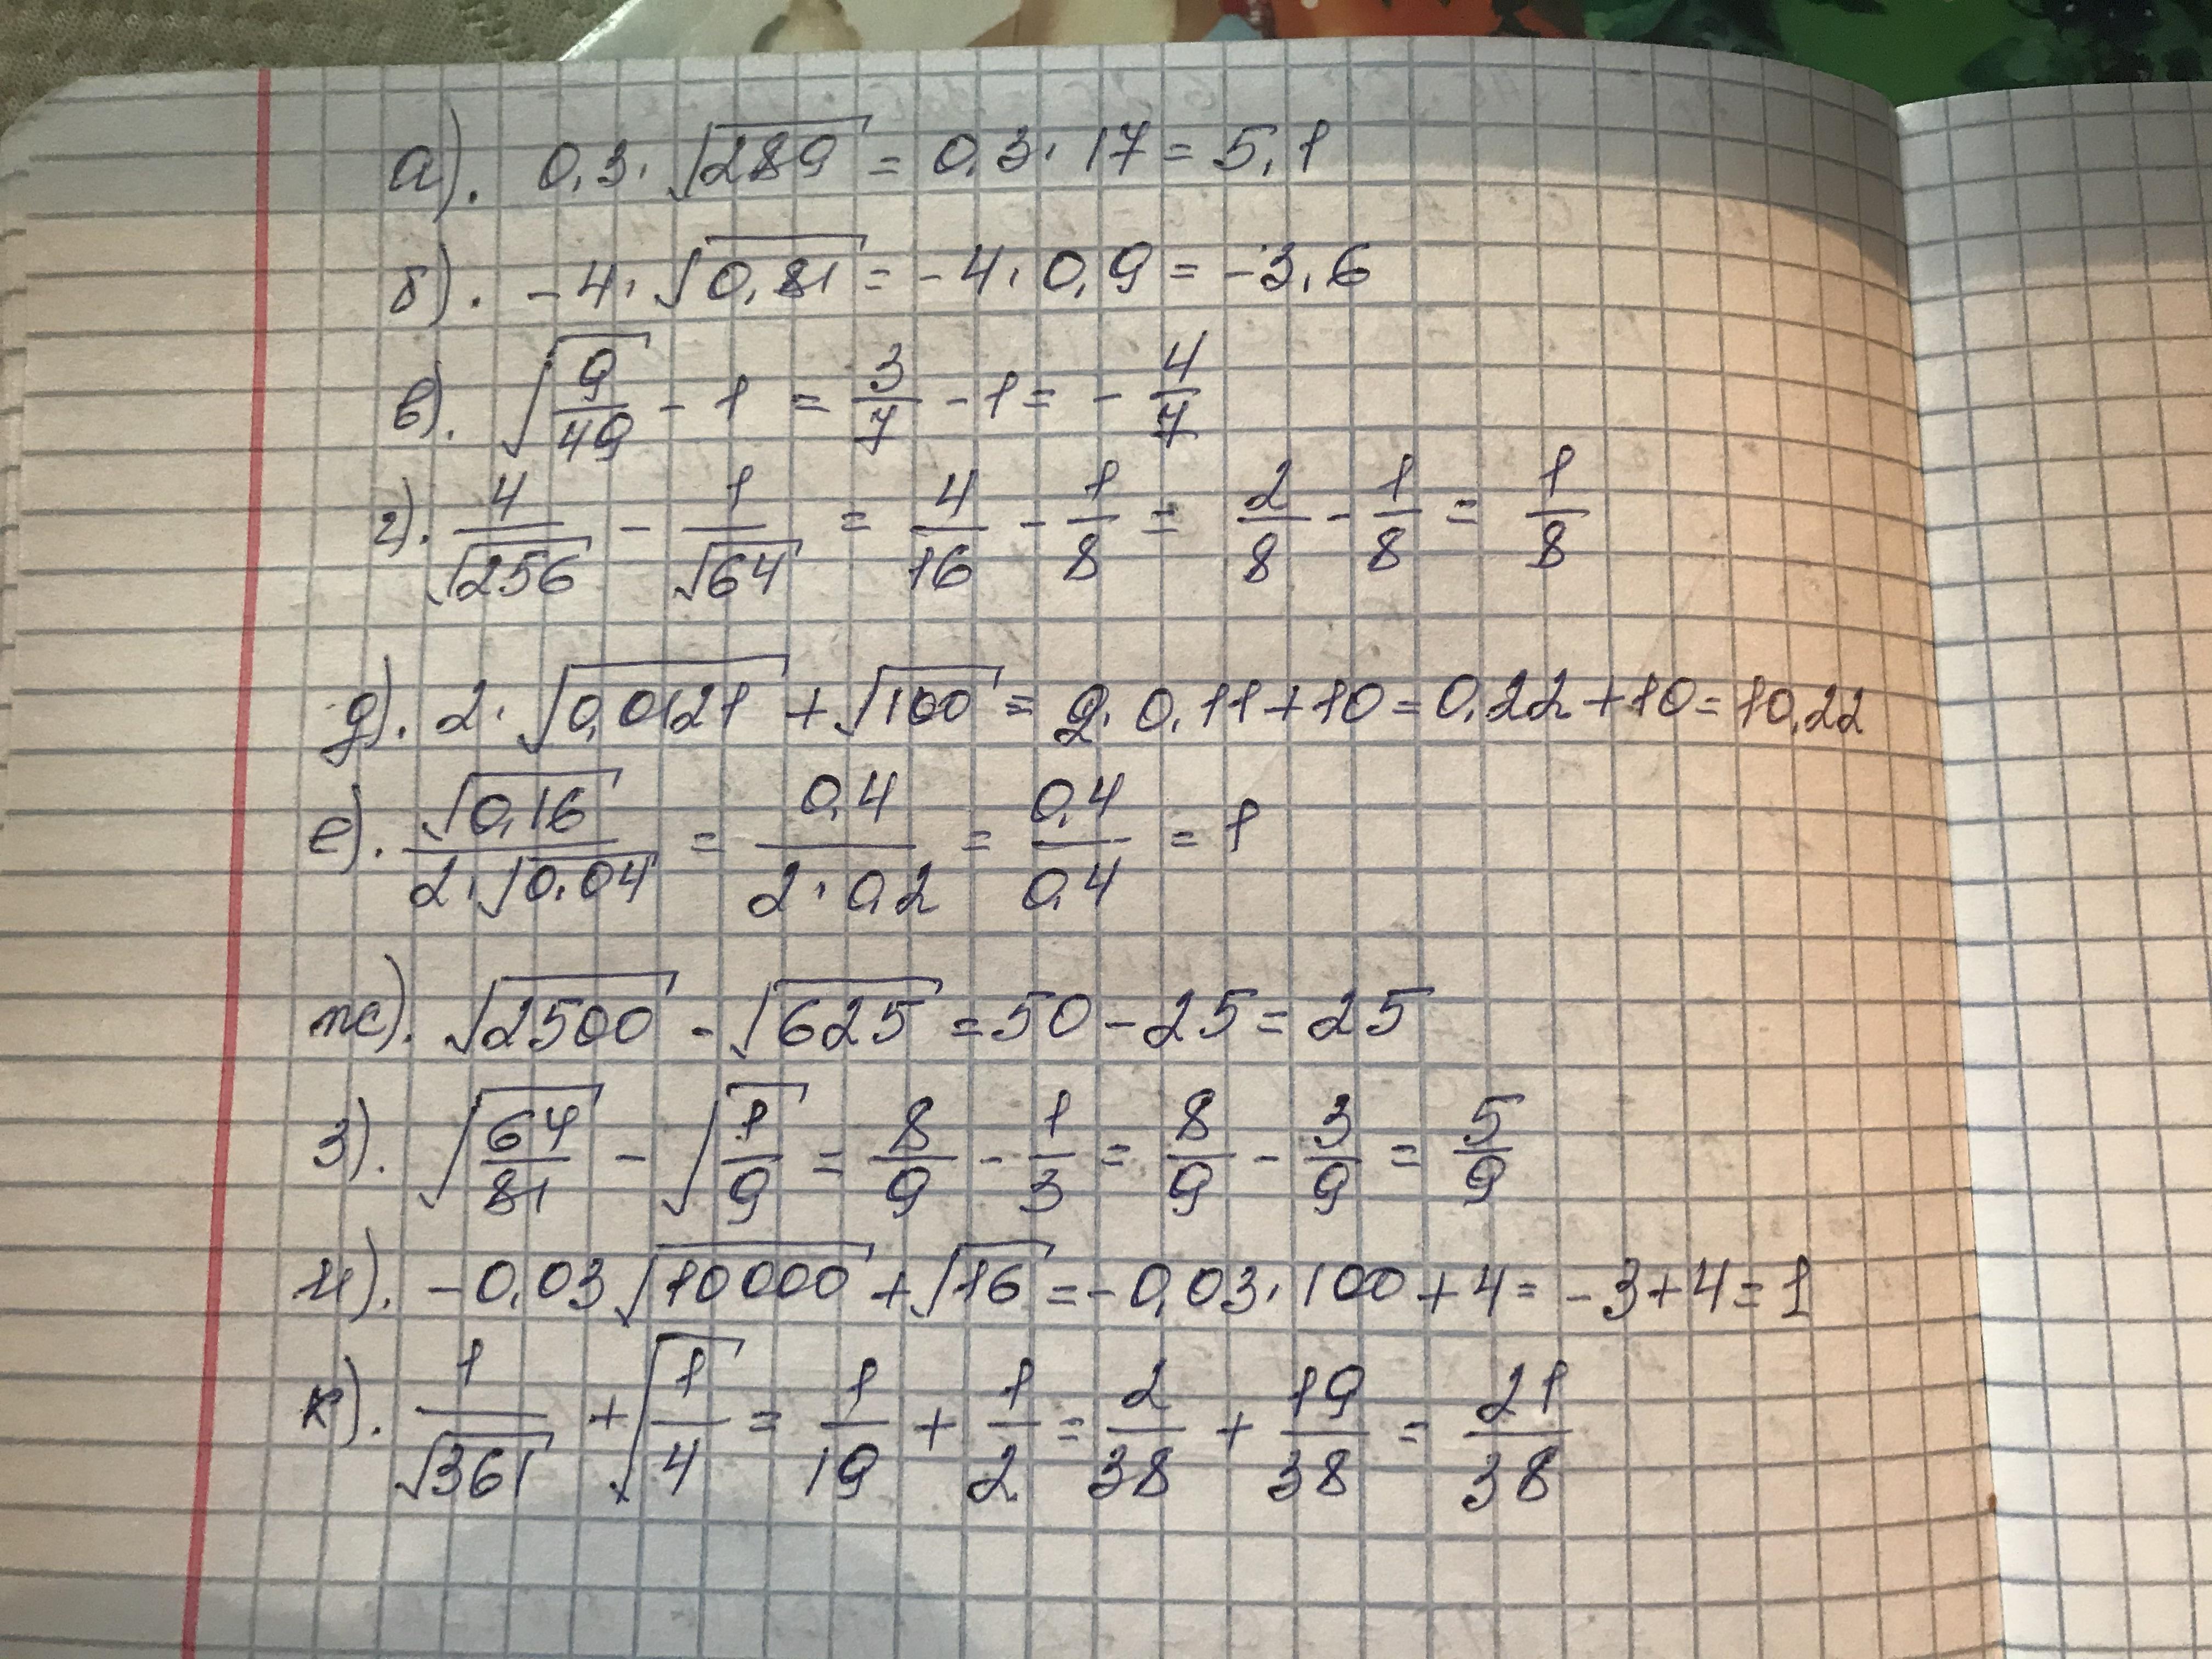 а). 0,3 · √289 = 0,3 · 17 = 5,1
б). -4 · √0,81 = -4 · 0,9 = -3,6
в). √(9/49) - 1 = 3/7 - 1 = -4/7
г). 4/√256 - 1/√64 = 4/16 - 1/8 = 2/8 - 1/8 = 1/8
д). 2 · √0,0121 + √100 = 2 · 0,11 + 10 = 0,22 + 10 = 10,22
е). √0,16/(2 · √0,04) = 0,4/(2 · 0,2) = 0,4/0,4 = 1
ж). √2500 - √625 = 50 - 25 = 25
з). √(64/81) - √(1/9) = 8/9 - 1/3 = 8/9 - 3/9 = 5/9
и). -0,03 √10000 + √16 = -0,03 · 100 + 4 = -3 + 4 = 1
к). 1/√361 + √(1/4) = 1/19 + 1/2 = 2/38 + 19/38 = 21/38